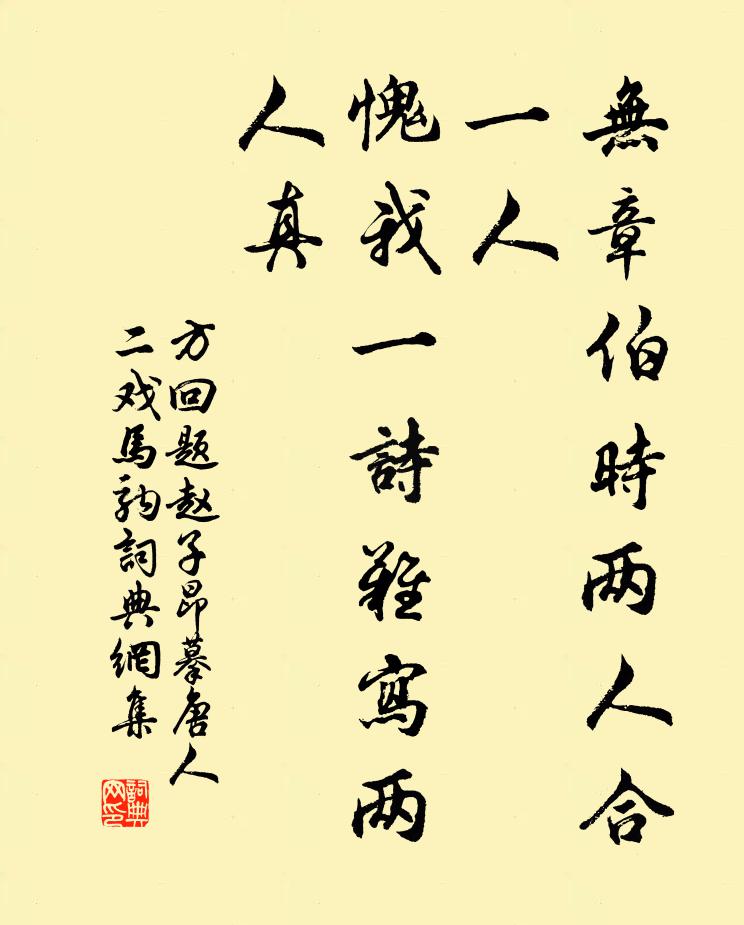 無章伯時两人合
一人
愧我一詩難寫两
人真
方回题赵子昂摹唐人
二戏馬驹詞典網集
詞典网印